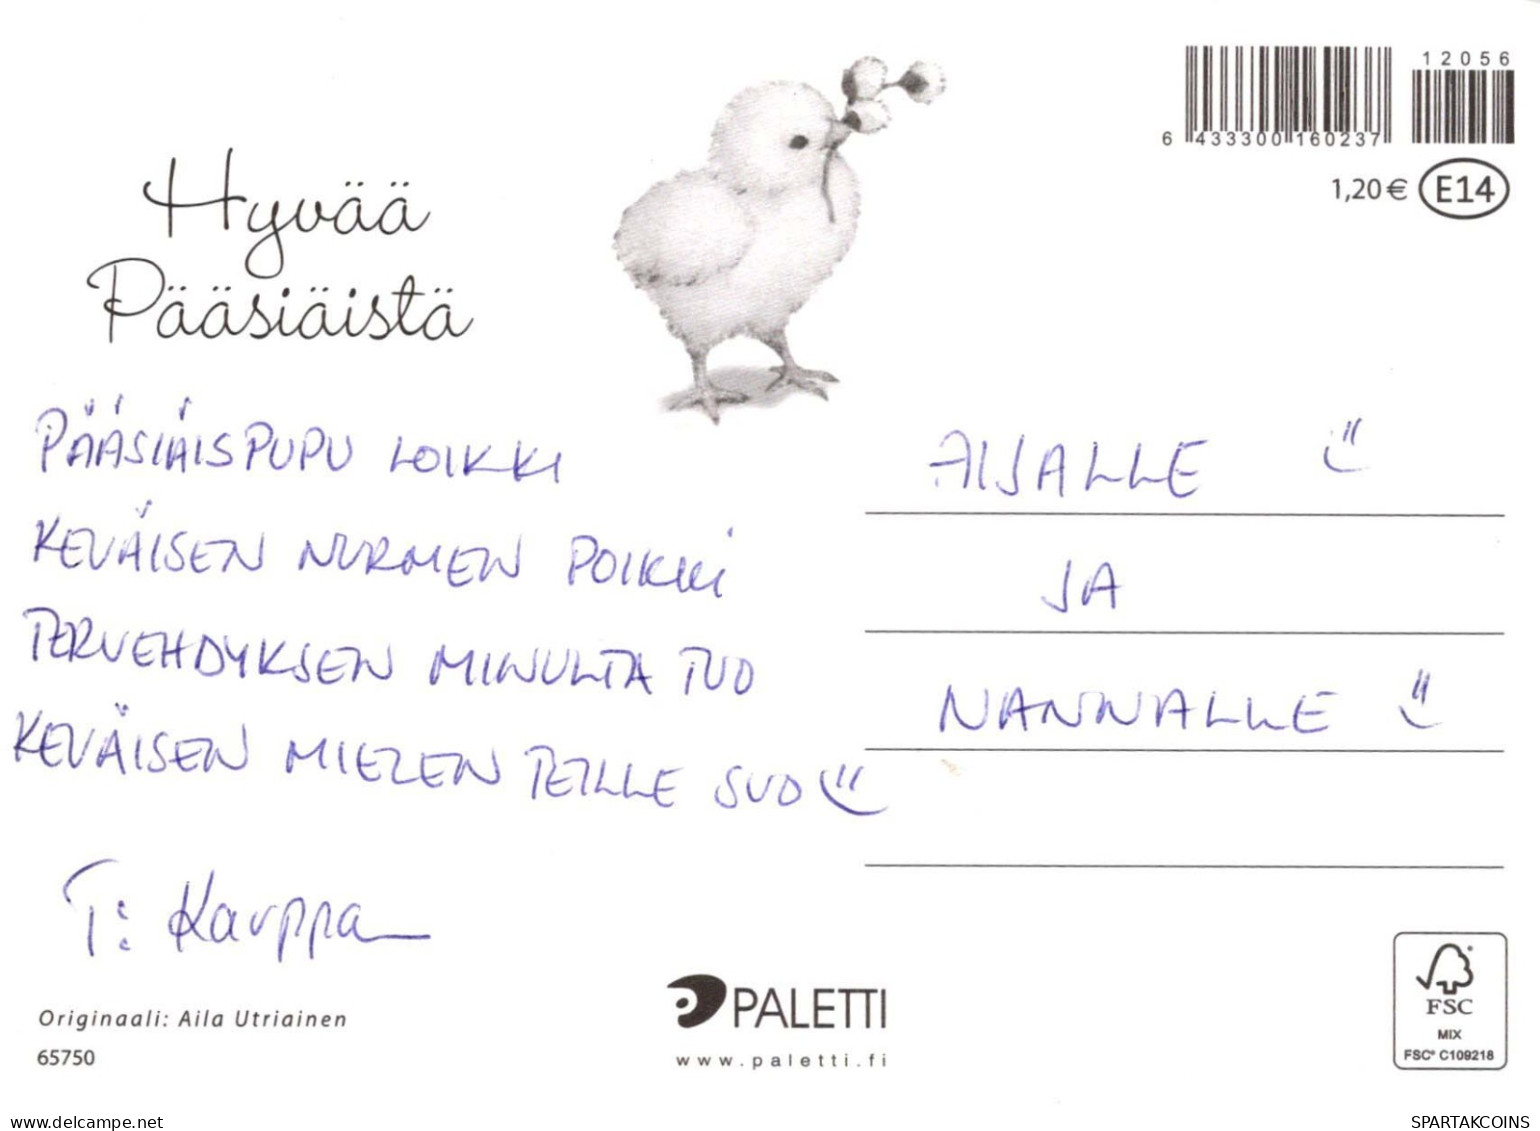 12056
6 433300 160237
1,20 € E14
Hyvää
Pääsiäistä
PÄÄSIÄISPUPU LOIKKI
KEVÄISEN NURMEN POIKKI
TERVEHDYKSEN MINULTA TUO
KEVÄISEN MIELEN TEILLE SUO
T: Kauppa
AIJALLE
JA
NANNALLE
Originaali: Aila Utriainen
65750
PALETTI
www.paletti.fi
FSC
MIX
FSC® C109218
delcampe.net
SPARTAKCOINS